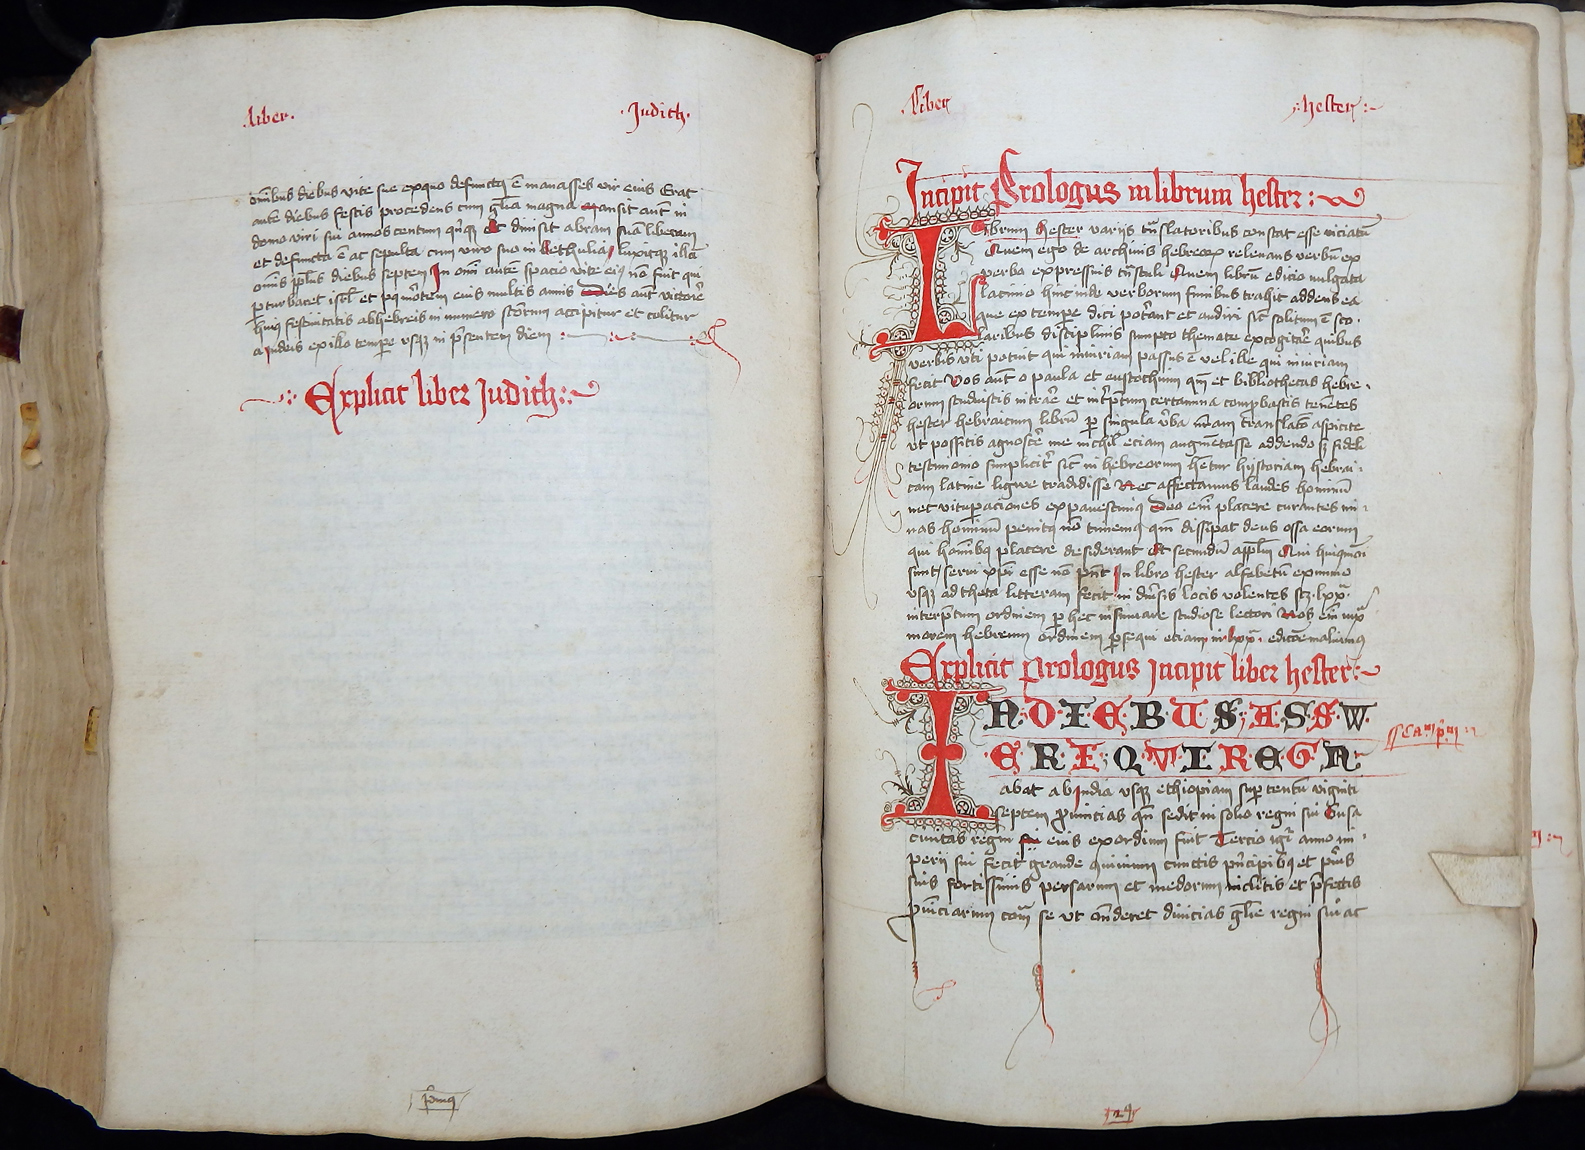 .liber. .Judith.
om̅ibus diebus vite sue exquo defunctꝰ e̅ manasses vir eius Erat
aute̅ diebus festis procedens cum gl̅ia magna Mansit aut̅ in
domo viri sui annos centum qn̅qꝫ et dimisit abram sua̅ liberam
et defuncta e̅ ac sepulta cum viro suo in Bethulia luxitqꝫ illa̅
om̅is pp̅lus diebus septem In om̅i aute̅ spacio vite eiꝰ no̅ fuit qui
ꝑturbaret isrl̅ et pꝰ mo̅rtem eius multis annis Dies aut̅ victorie̅
huiꝰ festiuitatis ab hebreis in numero sc̅torum accipitur et colitur
a iudeis ex illo tempe̅ vsqꝫ in p̅sentem diem
Explicit liber Judith
Liber hester
Incipit Prologus in librum hester
Librum hester varijs tn̅slatoribus constat esse viciatu̅
Quem ego de archiuis hebreoꝝ releuans verbu̅ ex
verba expressius tn̅stuli Quem libru̅ edicio vulgata
latinio hinc inde verborum finibus trahit addens ea
que ex tempe̅ dici pote̅rant et audiri sic̅ solitum e̅ sco
laribus disciplinis sumpto themate excogitare̅ quibus
verbis vti potuit qui iniuriam passus e̅ vel ille qui iniuriam
fecit Vos aut̅ o paula et eustochium qm̅ et bibliothecas hebre
orum studuistis intrare̅ et int̅ptum certamina comprobastis tene̅tes
hester hebraicum libru̅ ꝑ singula v̅ba nr̅am translato̅ aspicite
vt possitis agnosce̅ me nichil eciam augme̅tasse addendo sꝫ fideli
testimonio simplicit̅ sic̅ in hebreorum he̅tur hystoriam hebrai
cam latine ligwe tradidisse Nec affectamus laudes hominu̅
nec vitup̅aciones expauescimꝰ Deo eni̅ placere curantes mi
nas hominu̅ penitꝰ no̅ timemꝰ qm̅ dissipat deus ossa eorum
qui homi̅bꝰ placere desiderant Et secundu̅ ap̅lm Qui huiꝰmodi
sunt serui xp̅i esse no̅ pn̅t In libro hester alfabetu̅ ex minio
vsqꝫ ad theta litteram fecit in diu̅sis locis volentes scꝫ lxx
interp̅tum ordinem ꝑ hec insinuare studioso lectori Nos eni̅ iuxta̅
morem hebreum ordinem ꝓsequi etiam in lxxa edic̅oe maluimꝰ
Explicit Prologus Incipit liber hester
IN.DIEBUS.ASSW
ERI.QVI.REGN
abat ab India vsqꝫ ethiopiam sup̅ centu̅ viginti
septem ꝓuincias qn̅ sedit in solio regni sui Susa
ciuitas regni eius exordium fuit Tercio igr̅ anno im
perii sui fecit grande conuiuium cunctis pn̅cipibꝰ et pu̅is
suis fortissimis persarum et medorum inclitis et p̅fectis
ꝓuinciarum cora̅ se vt onde̅ret diuicias gl̅ie regni sui ac